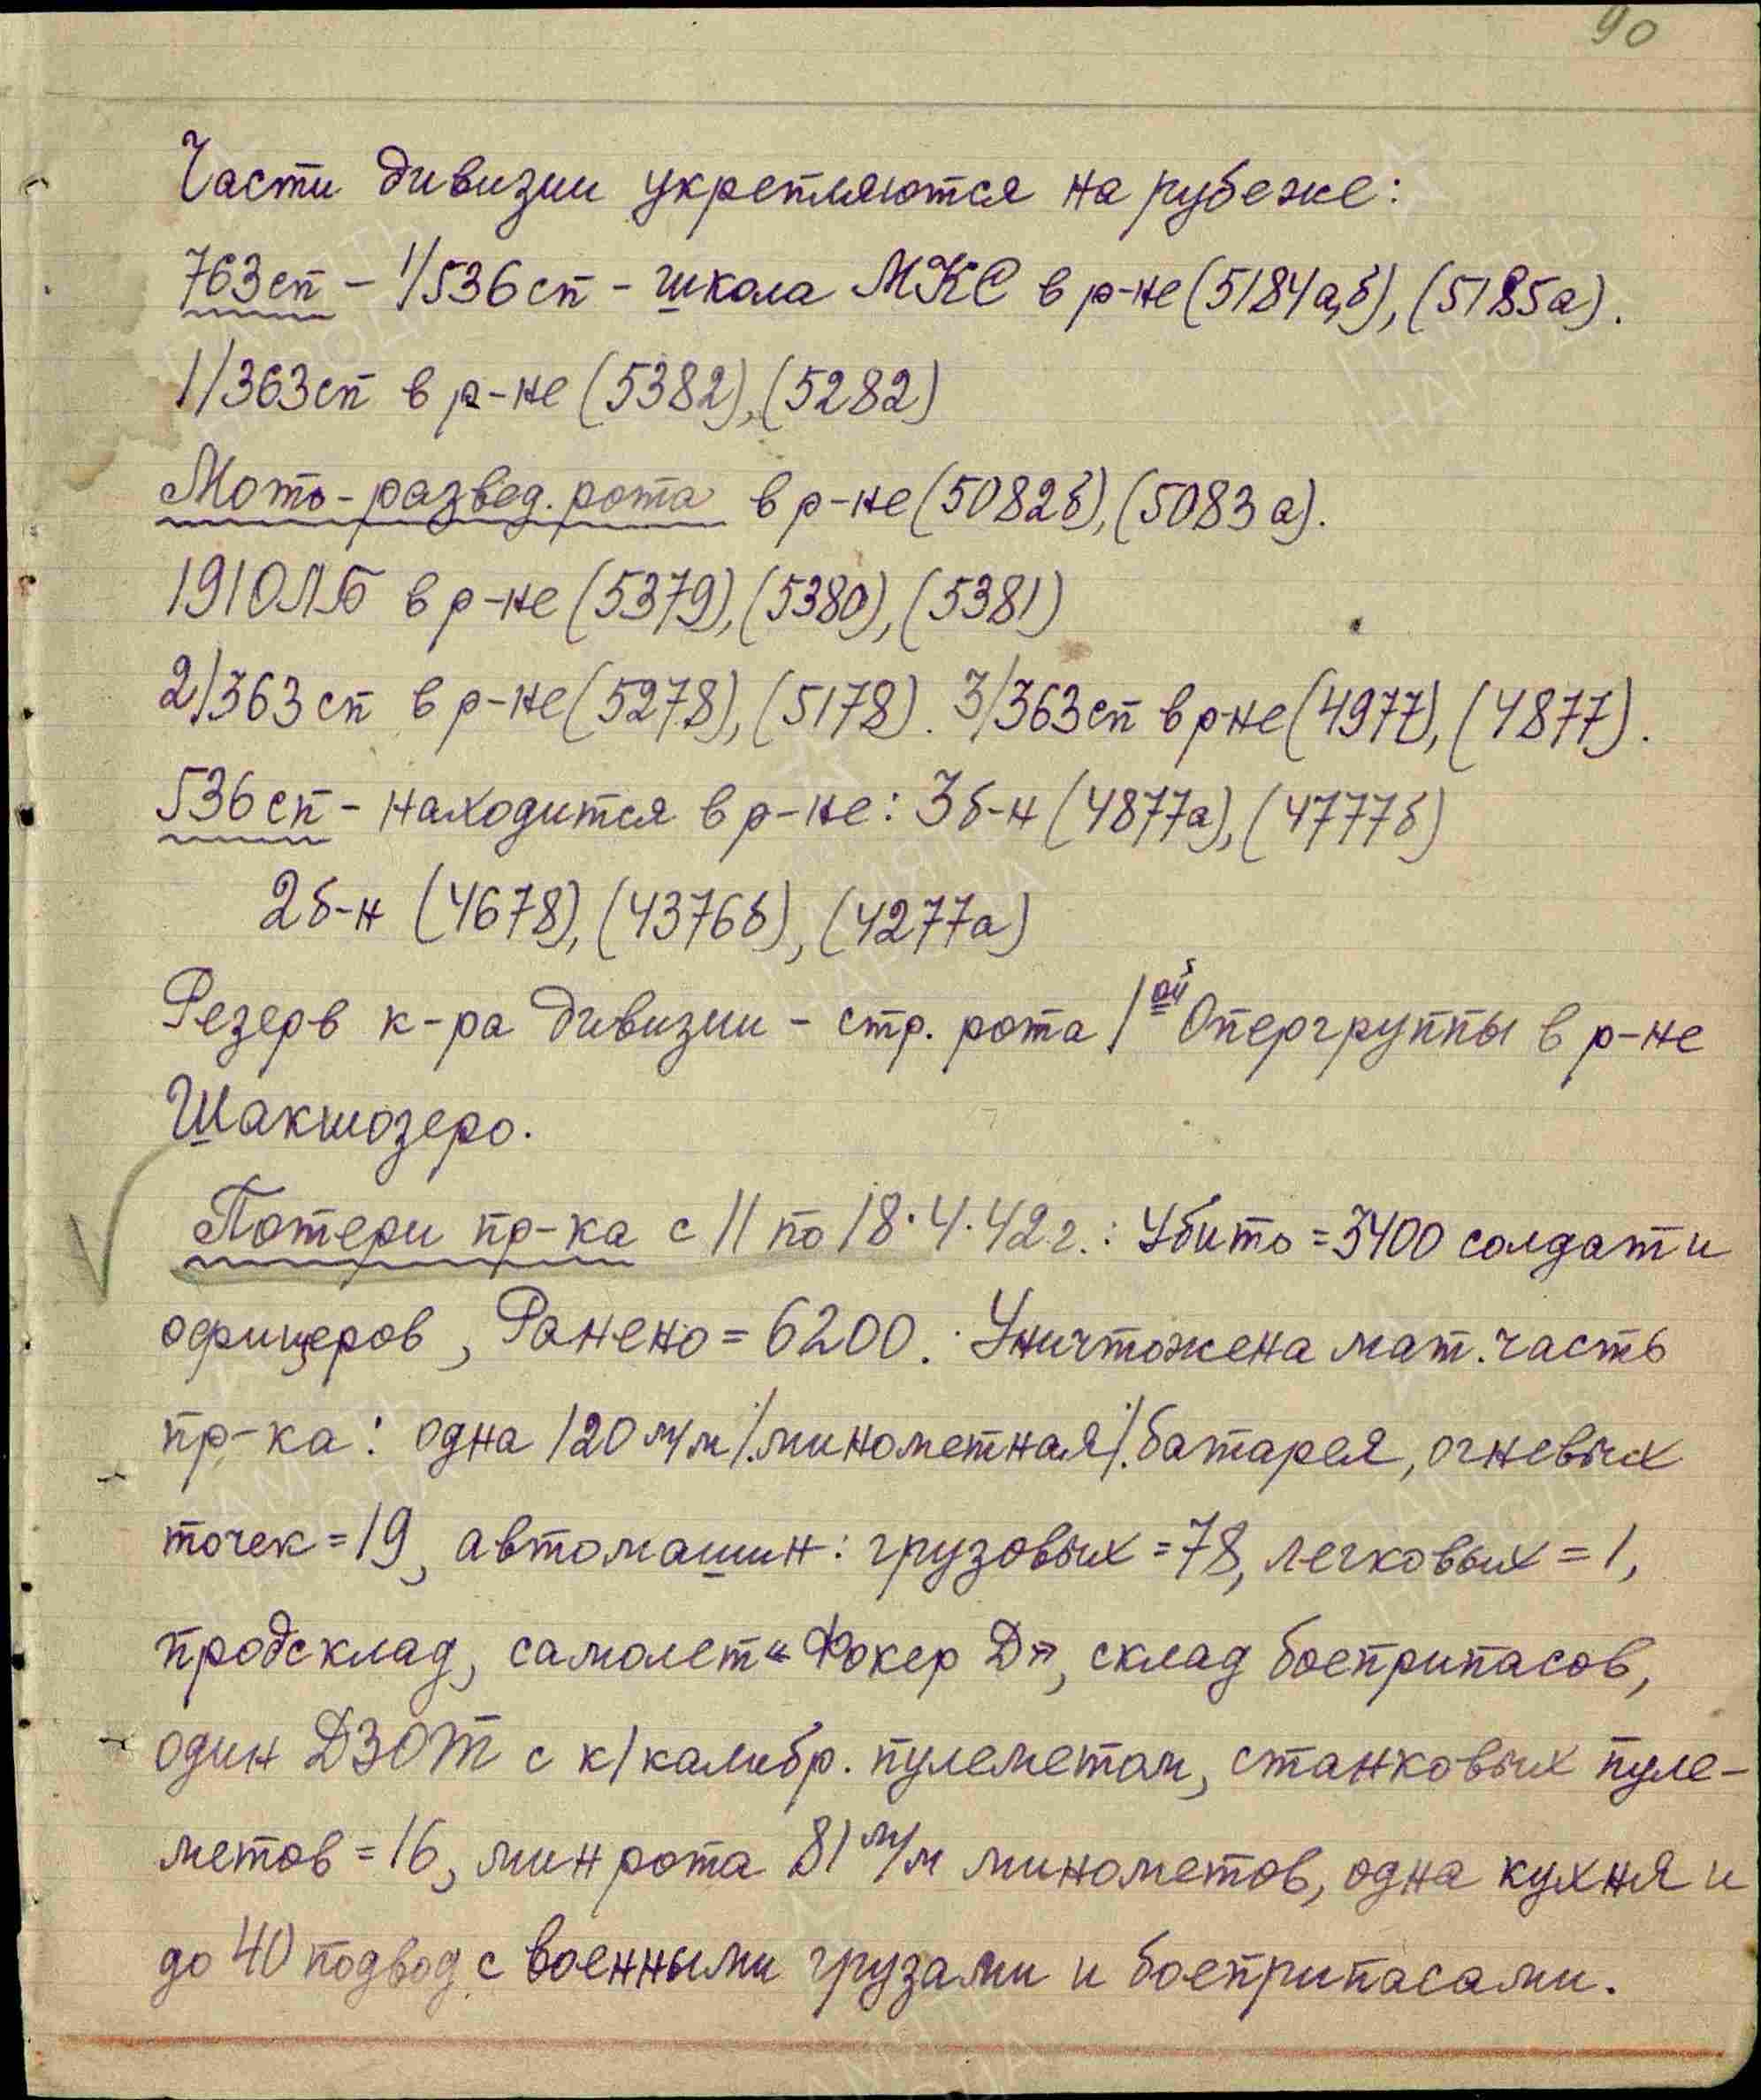 90
Части дивизии укрепляются на рубеже:
763сп - 1/536сп - школа МКС в р-не (5184а,б), (5185а).
1/363сп в р-не (5382), (5282)
Мото-развед. рота в р-не (5082б), (5083а).
191ОЛБ в р-не (5379), (5380), (5381)
2/363сп в р-не (5278), (5178). 3/363сп в р-не (4977), (4877).
536сп - находится в р-не: 3б-н (4877а), (4777б)
2б-н (4678), (4376б), (4277а)
Резерв к-ра дивизии - стр. рота 1ой Опергруппы в р-не
Шакшозеро.
Потери пр-ка с 11 по 18.4.42г.: Убито = 3400 солдат и
офицеров, Ранено = 6200. Уничтожена мат. часть
пр-ка: одна 120 м/м /.минометная/. батарея, огневых
точек = 19, автомашин: грузовых = 78, легковых = 1,
продсклад, самолет "Фокер Д", склад боеприпасов,
один ДЗОТ с к/калибр. пулеметом, станковых пуле-
метов = 16, минрота 81 м/м минометов, одна кухня и
до 40 подвод с военными грузами и боеприпасами.